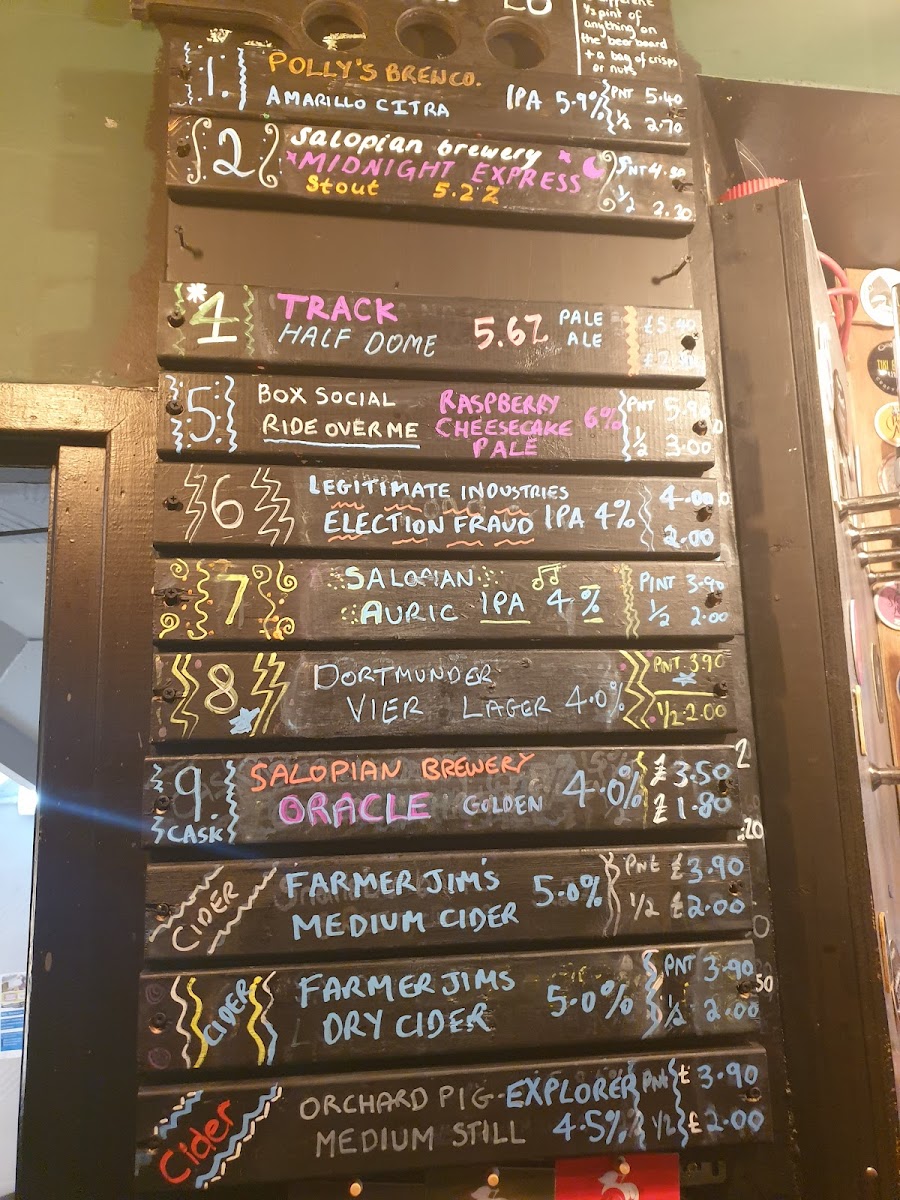 ½ pint of
anything on
the beer board
+ a bag of crisps
or nuts
1. POLLY'S BREW CO.
AMARILLO CITRA IPA 5.9% PNT 5.40
½ 2.70
2 Salopian brewery
MIDNIGHT EXPRESS
Stout 5.2%
½ 2.30
4 TRACK
HALF DOME 5.6% PALE
ALE
5 BOX SOCIAL
RIDE OVER ME
RASPBERRY
CHEESECAKE
PALE 6% PNT
½ 3.00
6 LEGITIMATE INDUSTRIES
ELECTION FRAUD IPA 4% 4.00
2.00
7 SALOPIAN
AURIC IPA 4% PINT 3.90
½ 2.00
8 DORTMUNDER
VIER LAGER 4.0% PNT 3.90
½ 2.00
9. CASK
SALOPIAN BREWERY
ORACLE GOLDEN 4.0% £3.50
£1.80
2
.20
CIDER FARMER JIM'S
MEDIUM CIDER 5.0% PNT £3.90
½ £2.00
CIDER FARMER JIMS
DRY CIDER 5.0% PNT 3.90
½ 2.00
50
Cider ORCHARD PIG-EXPLORER
MEDIUM STILL 4.5% PNT £3.90
½ £2.00